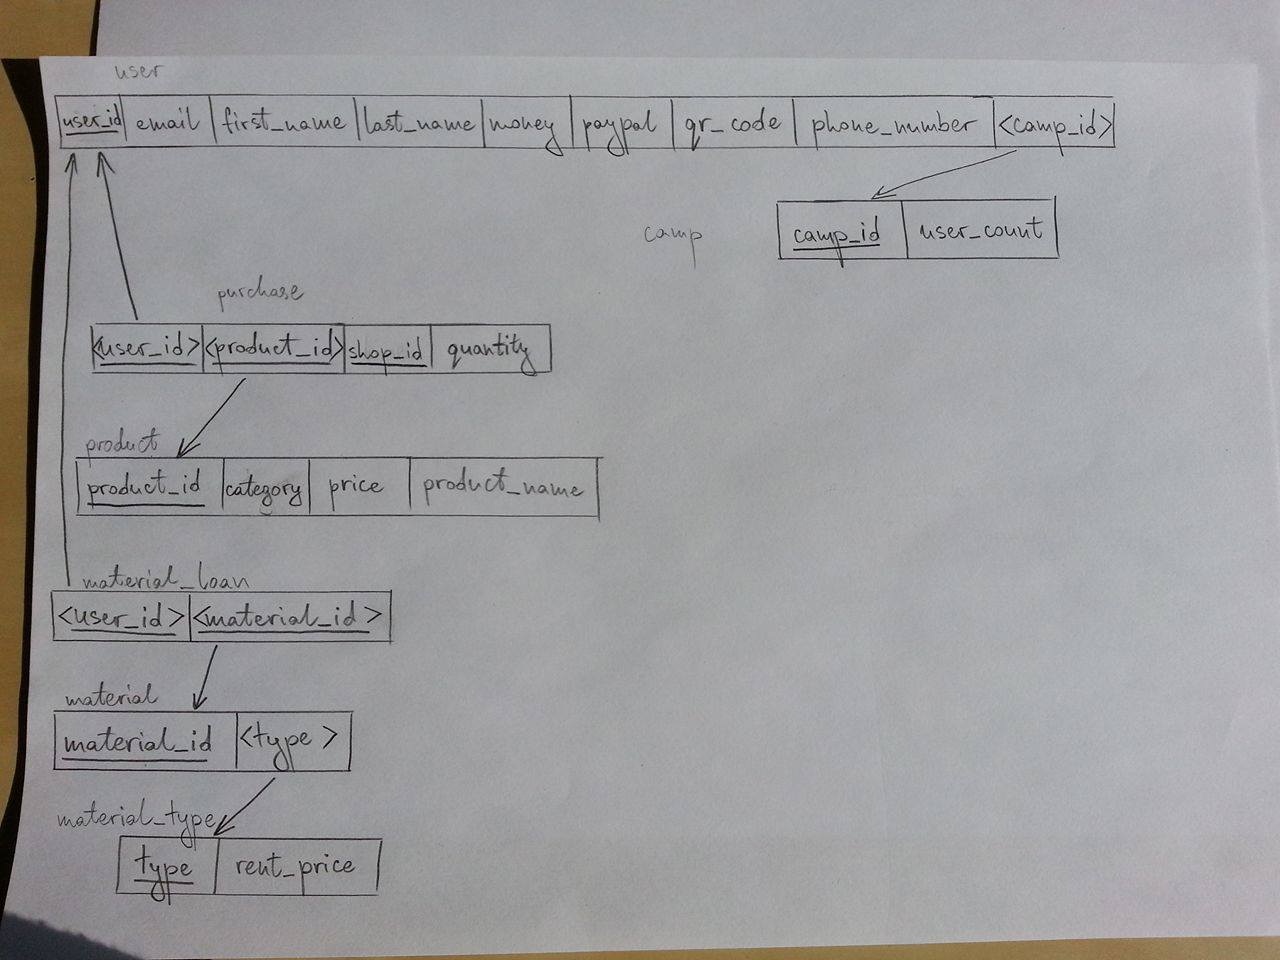 user
user_id email first_name last_name money paypal qr_code phone_number <camp_id>
camp
camp_id user_count
purchase
<user_id> <product_id> shop_id quantity
product
product_id category price product_name
material_loan
<user_id> <material_id>
material
material_id <type>
material_type
type rent_price